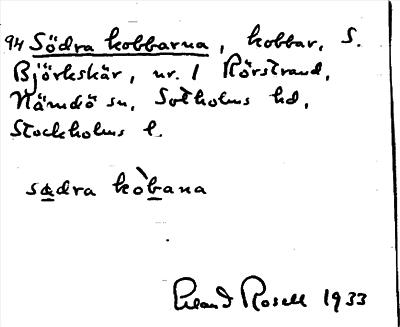 94 Södra kobbarna, kobbar, S.
Björkskär, nr. 1 Rörstrand,
Nämdö sn, Sotholms hd,
Stockholms l.
sødra kòbana
Erland Rosell 1933